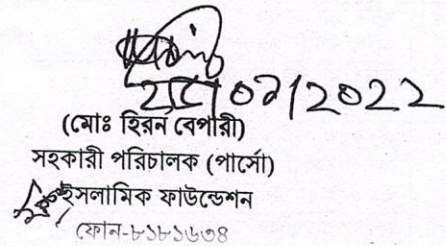 (মোঃ হিরন বেপারী)
সহকারী পরিচালক (পার্সো)
ইসলামিক ফাউন্ডেশন
ফোন-৮১৮১৬৩৪